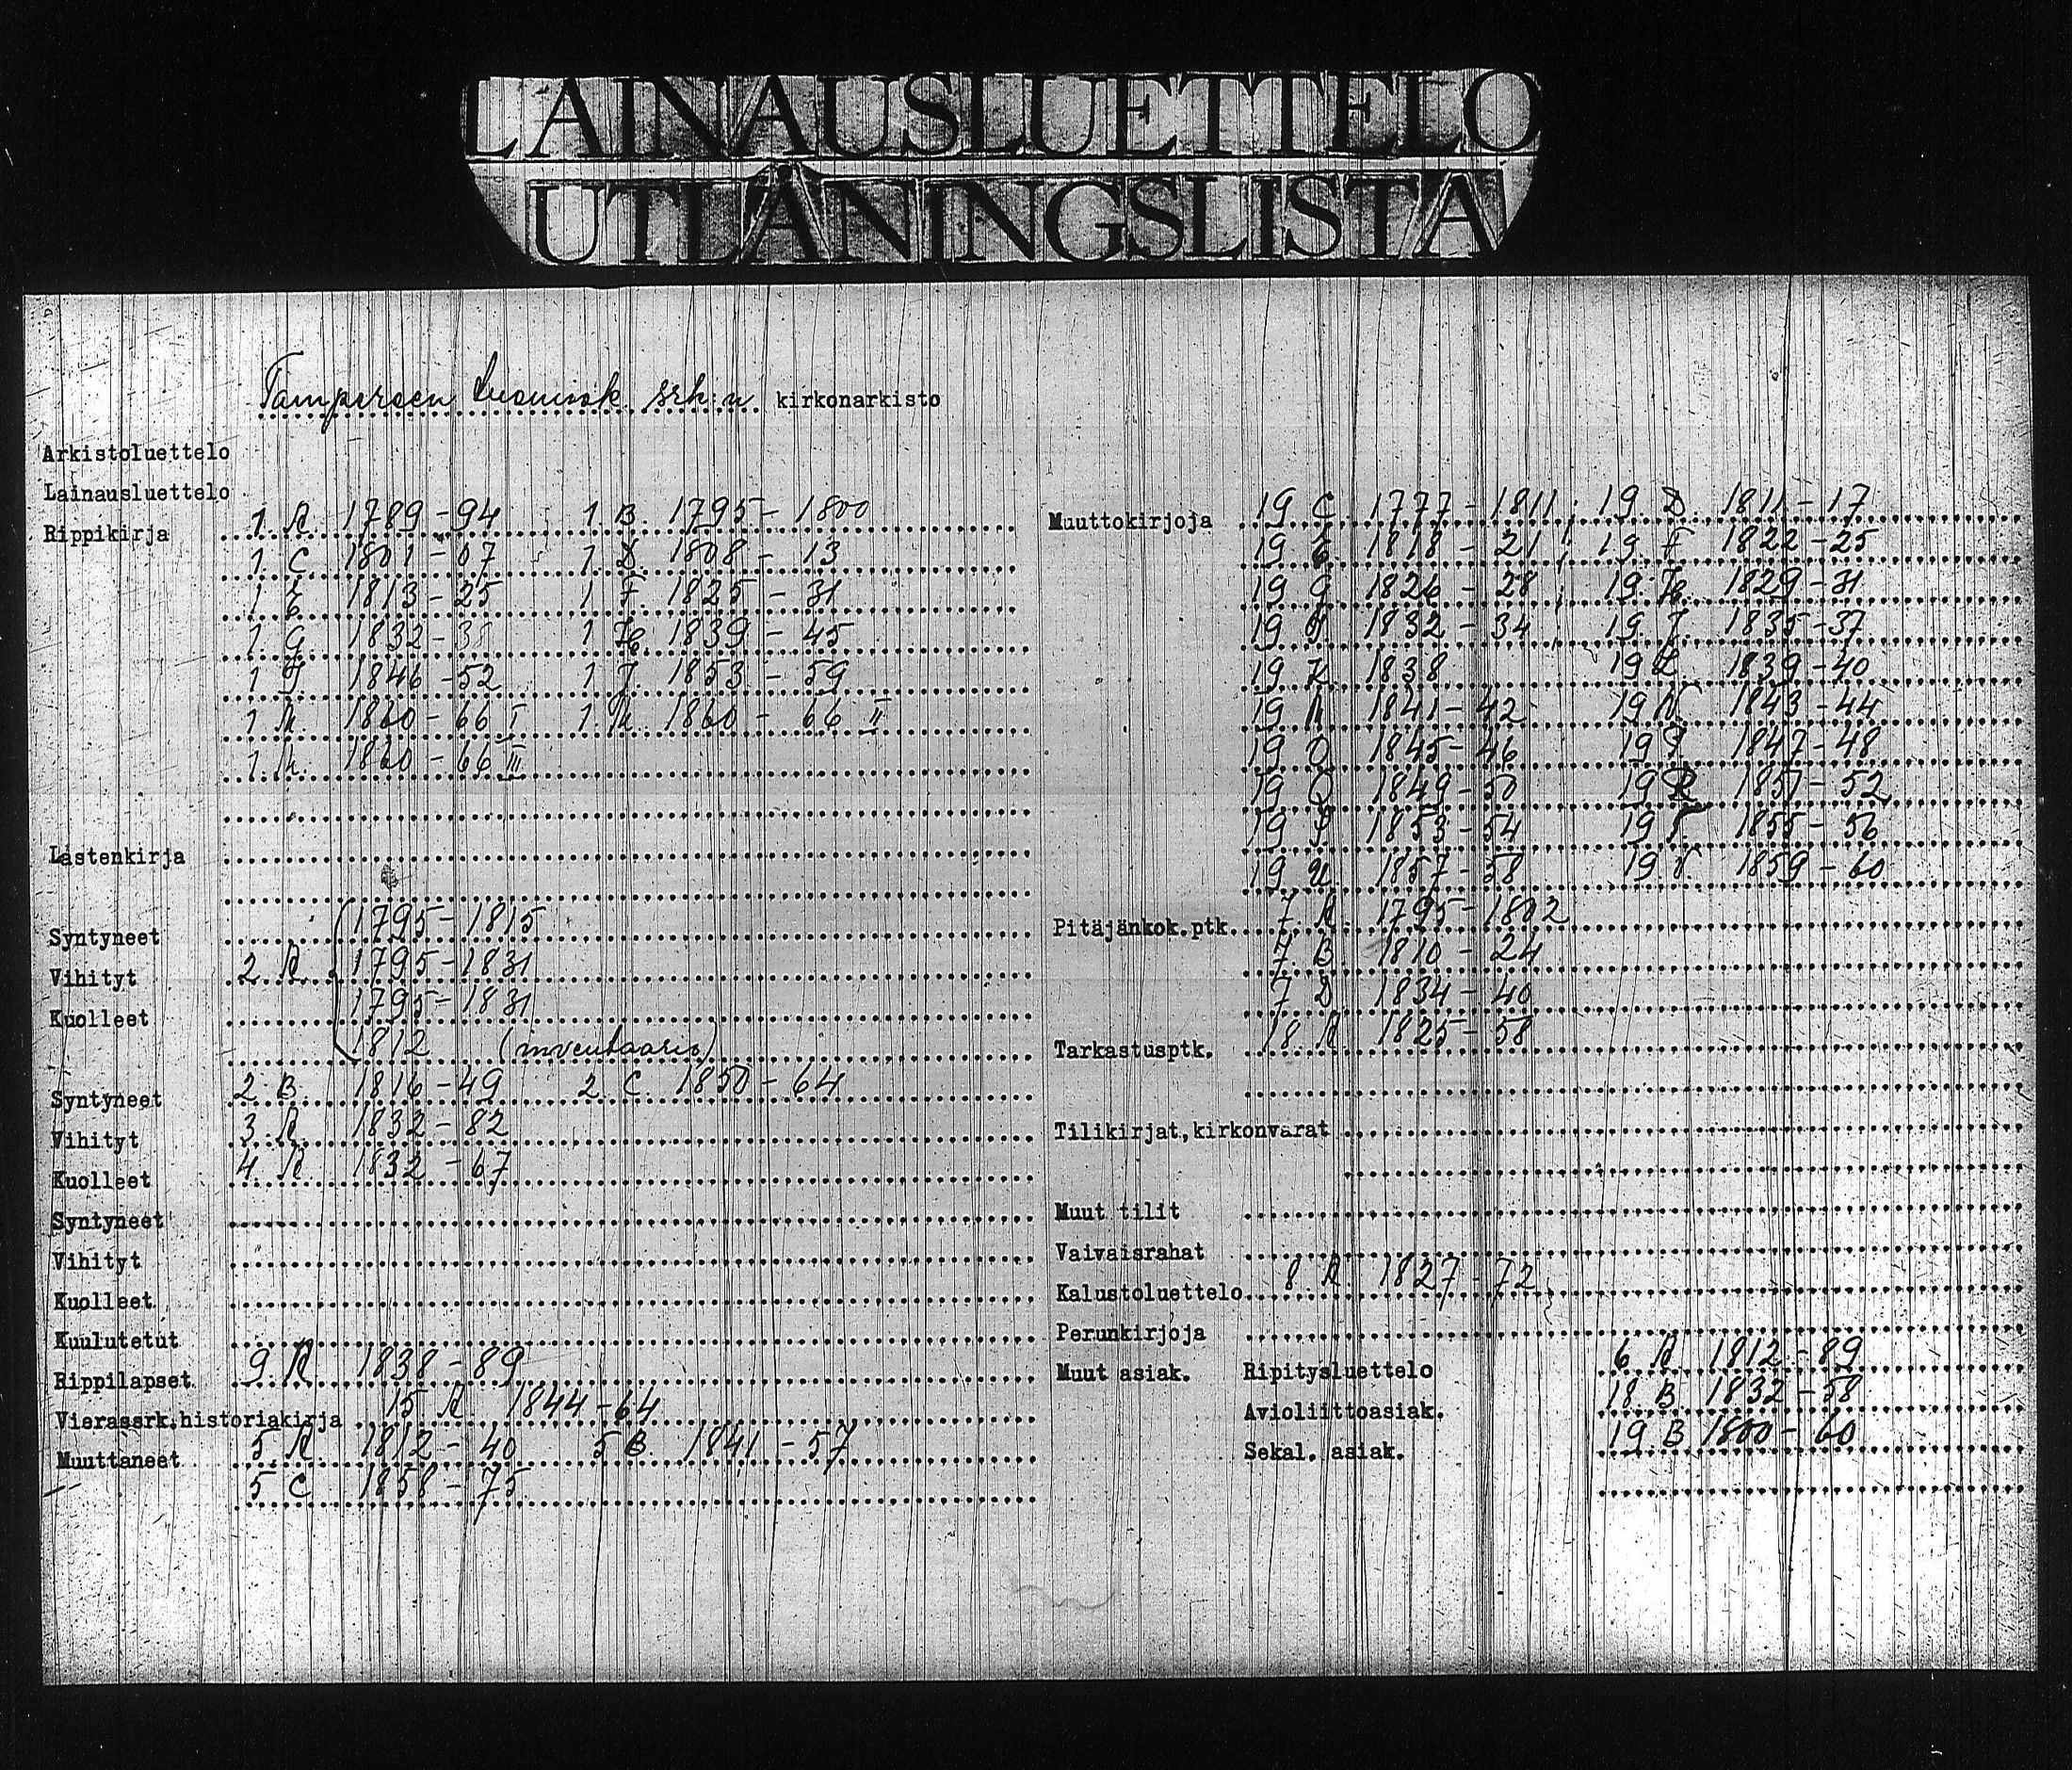 LAINAUSLUETTELO
UTLÅNINGSLISTA
Tampereen tuomiok srk:n kirkonarkisto
Arkistoluettelo
Lainausluettelo
Rippikirja 1. A. 1789-94 1. B. 1795-1800
1. C 1801-07 1. D 1808-13
1 E 1813-25 1 F. 1825-31
1. G 1832-3 1 H. 1839-45
1 I 1846-52 1 J. 1853-59
1 K. 1860-66 I 1. K. 1860-66 II
1. K. 1860-66 III
Lastenkirja
Syntyneet 1795-1815
Vihityt 2. A. 1795-1831
Kuolleet 1795-1831
1812 (inventaario)
Syntyneet 2 B. 1816-49 2 C. 1850-64
Vihityt 3. A. 1832-82
Kuolleet 4 A 1832-67
Syntyneet
Vihityt
Kuolleet
Kuulutetut
Rippilapset 9. A 1838-89
Vierassrk.historiakirja 15 A 1844-64
Muuttaneet 5. A 1812-40 5 B. 1841-57
5 C 1858-75
Muuttokirjoja 19 C 1777-1811; 19 D 1811-17
19 E 1818-21; 19 F 1822-25
19 G 1826-28; 19. H. 1829-31
19 I 1832-34 19. J. 1835-37
19 K 1838 19 L 1839-40
19 M 1841-42 19 N 1843-44
19 O 1845-46 19 P. 1847-48
19 Q 1849-50 19 R 1851-52
19 S 1853-54 19 T. 1855-56
19 U 1857-58 19 V. 1859-60
Pitäjänkok.ptk. 7. A. 1795-1802
7. B 1810-24
7 D 1834-40
Tarkastusptk. 18. A 1825-58
Tilikirjat,kirkonvarat
Muut tilit
Vaivaisrahat
Kalustoluettelo 8 A. 1827-72
Perunkirjoja
Muut asiak. Ripitysluettelo 6 A. 1812-89
Avioliittoasiak. 18. B. 1832-58
Sekal. asiak. 19 B 1800-60